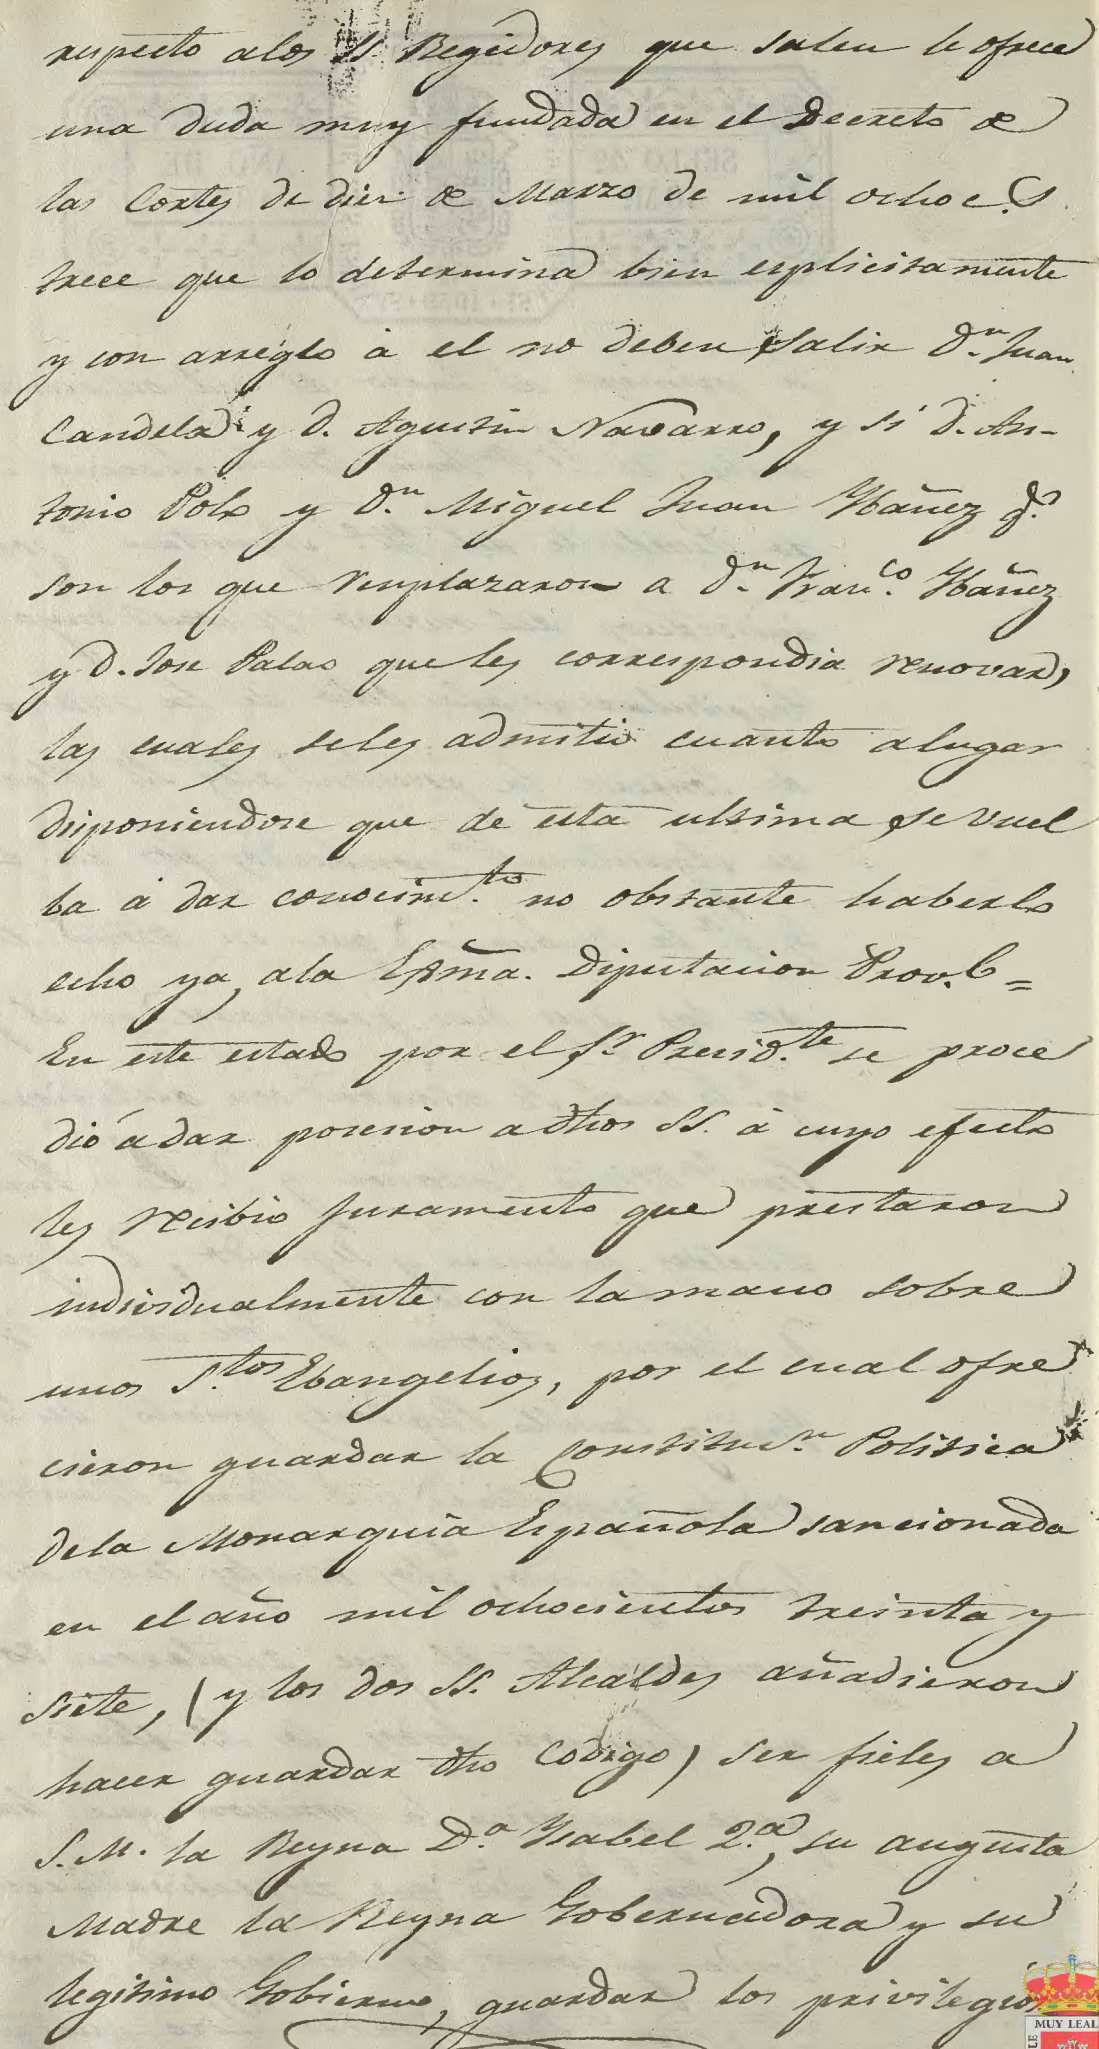 respecto alos SS. Regidores que salen le ofrece
una duda muy fundada en el Decreto de
las Cortes de diez de Marzo de mil ochoc.s
trece que lo determina bien esplicitamente
y con arreglo á el no deben salir D.n Juan
Candela y D. Agustin Navarro, y si D. An-
tonio Polo y D.n Miguel Juan Ybañez q.e
son los que remplazaron a D.n Fran.co Ybañez
y D. Jose Palao que les correspondia renovar,
las cuales seles admitió cuanto alugar
disponiendose que de esta ultima se vuel
ba á dar conocim.to no obstante haberlo
echo ya, ala Exma. Diputacion Prov.l =
En este estado por el S.r Presid.te se proce
dió á dar posesion a dhos SS. á cuyo efecto
les recibio juramento que prestaron
individualmente con la mano sobre
unos S.tos Ebangelios, por el cual ofre
cieron guardar la Constituc.n Politica
dela Monarquía Española sancionada
en el año mil ochocientos treinta y
siete, (y los dos SS. Alcaldes añadieron
hacer guardar dho Codigo) ser fieles a
S. M. la Reyna D.a Ysabel 2.a, su augusta
Madre la Reyna Gobernadora y su
legitimo Gobierno, guardar los privilegios
MUY LEAL